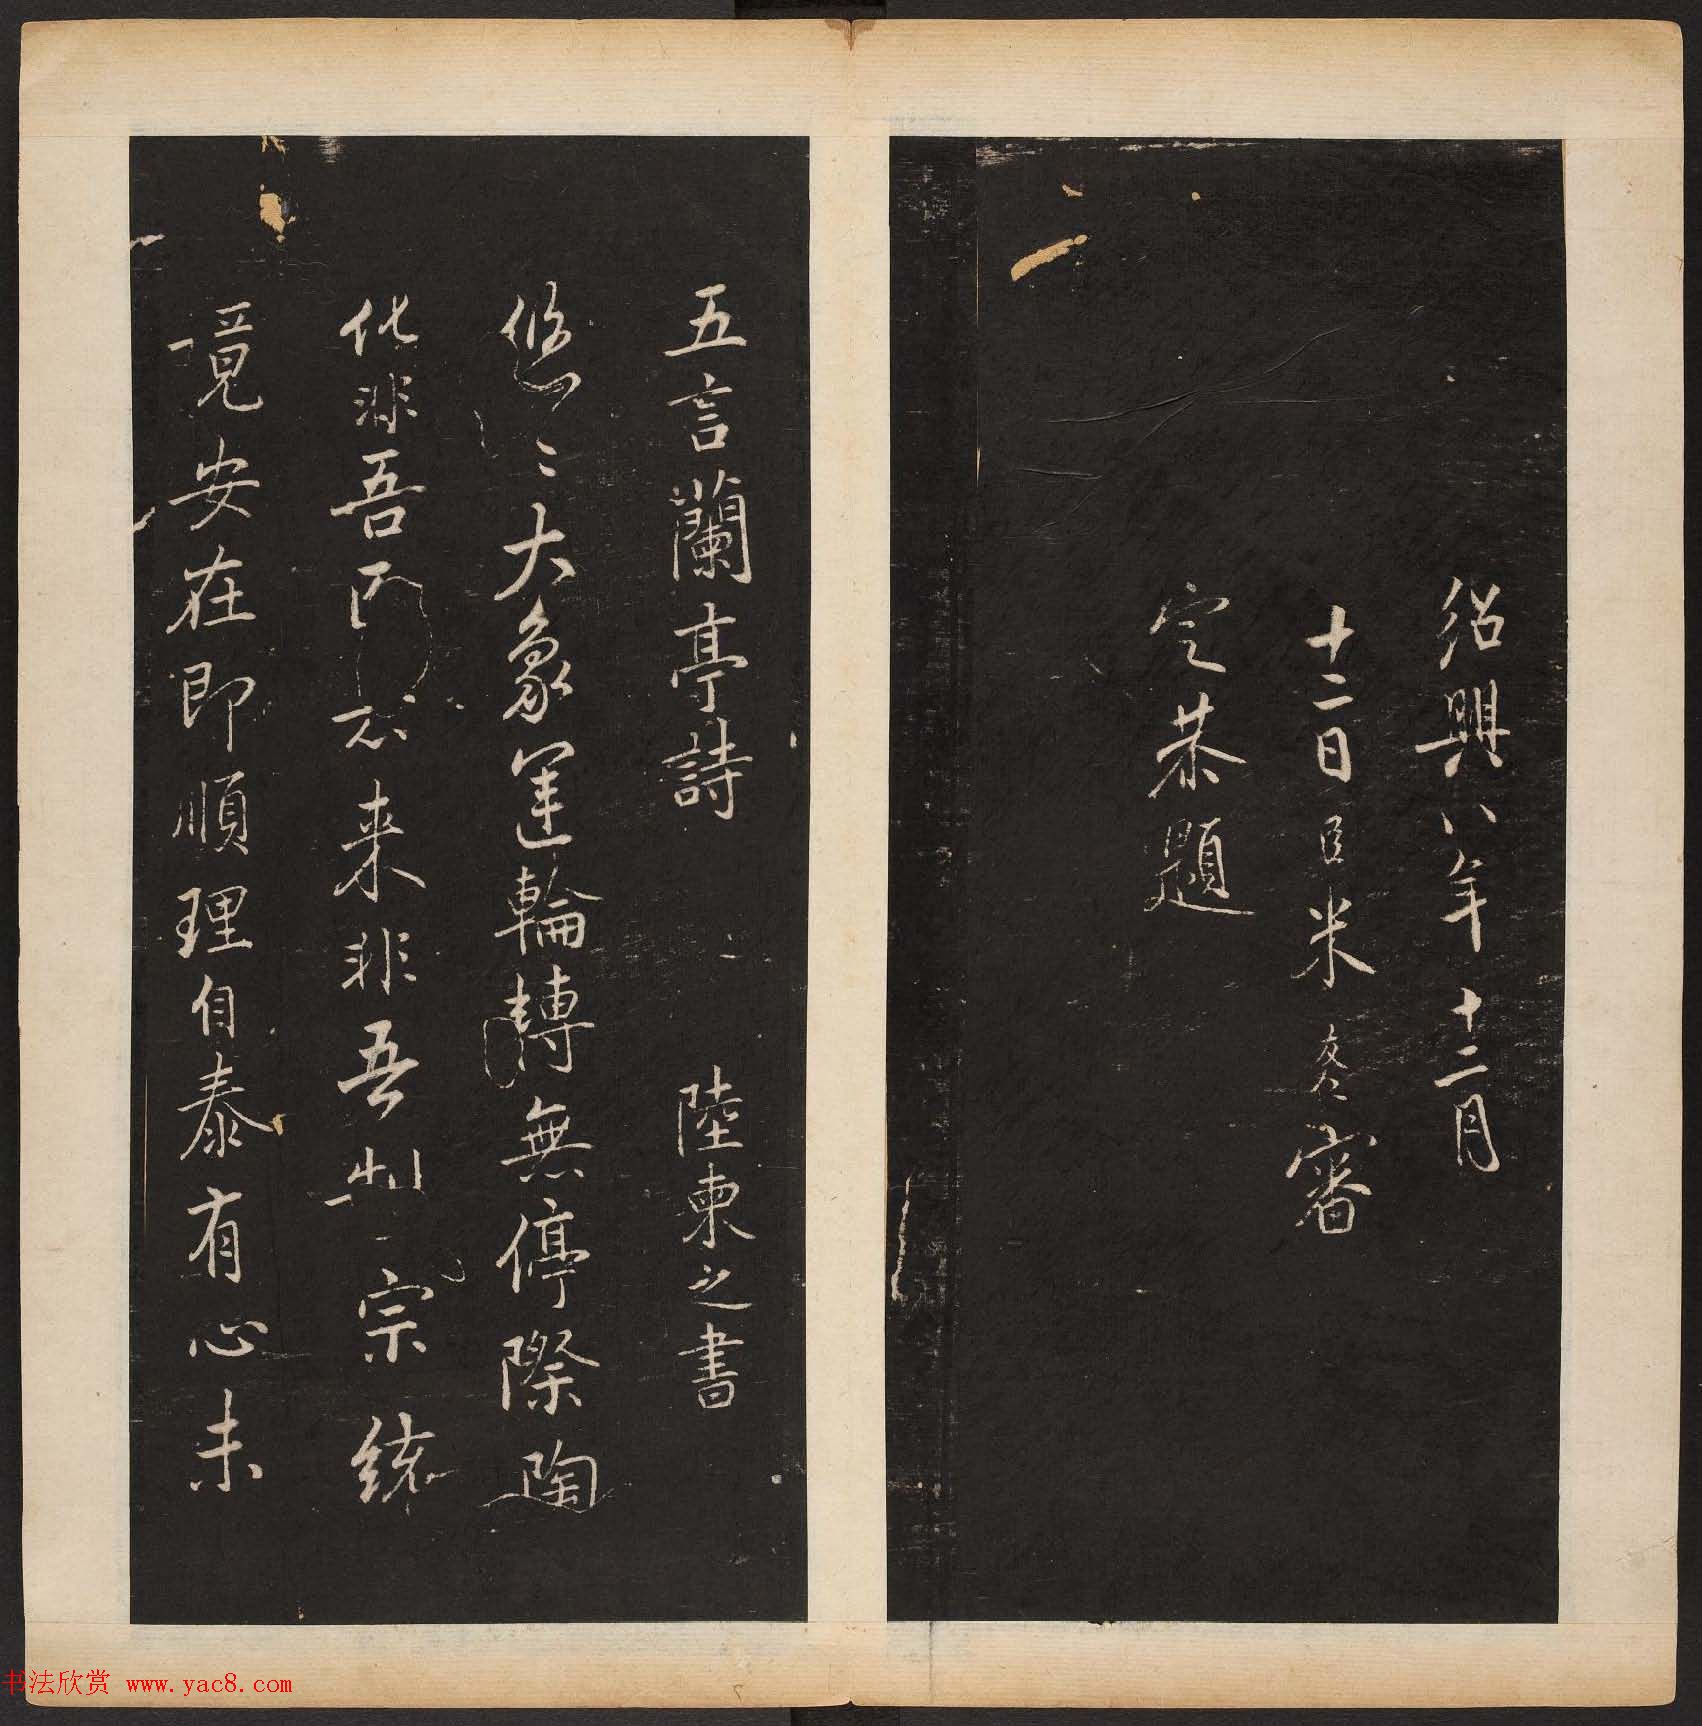 紹興八年十二月
十二日臣米友仁審
定恭題
五言蘭亭詩 陸柬之書
悠〻大象運輪轉無停際陶
化非吾因去来非吾制宗統
竟安在即順理自泰有心未
书法欣赏 www.yac8.com